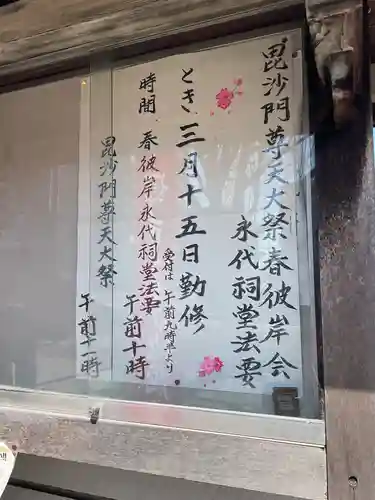 毘沙門尊天大祭春彼岸会
永代祠堂法要
とき 三月十五日勤修
受付は午前九時半より
時間 春彼岸永代祠堂法要 午前十時
毘沙門尊天大祭 午前十一時